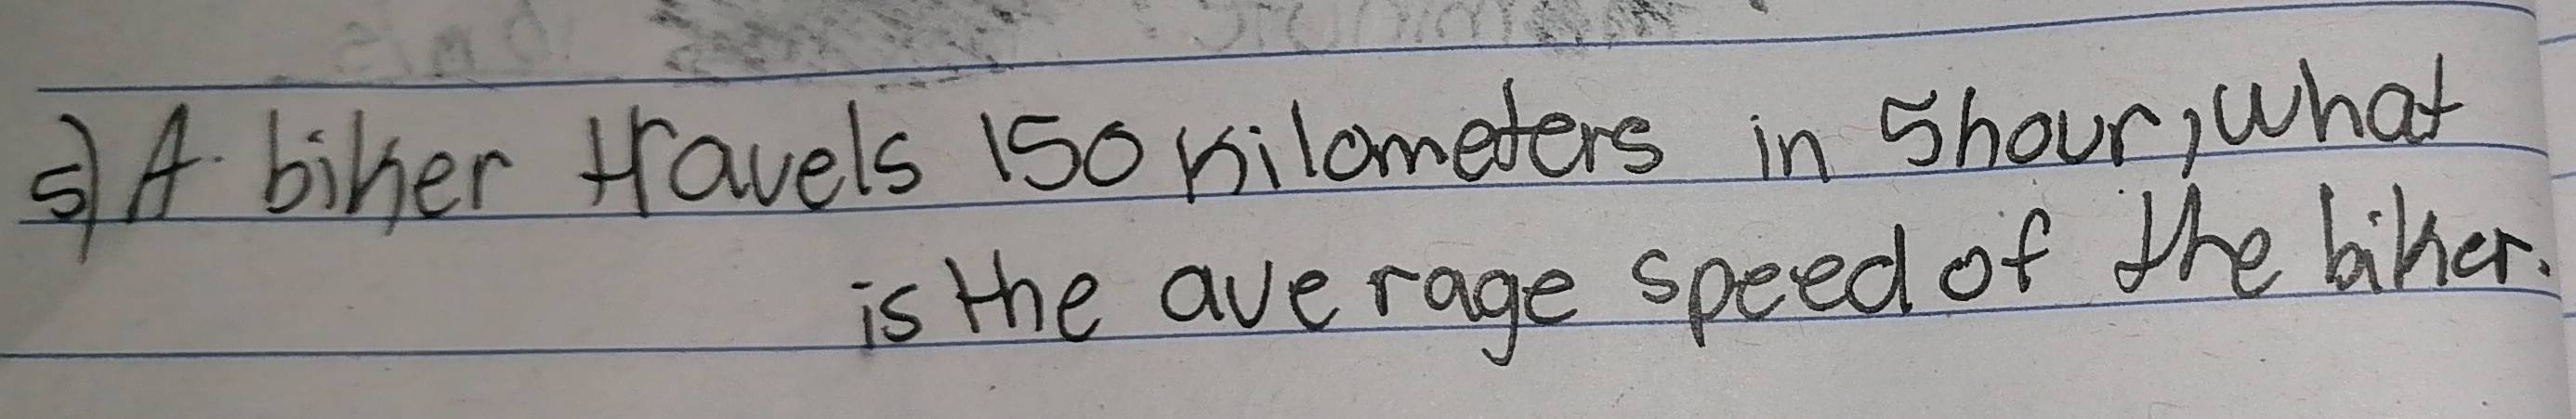 5) A biker travels 150 kilometers in 5hour, what
is the average speed of the biker.